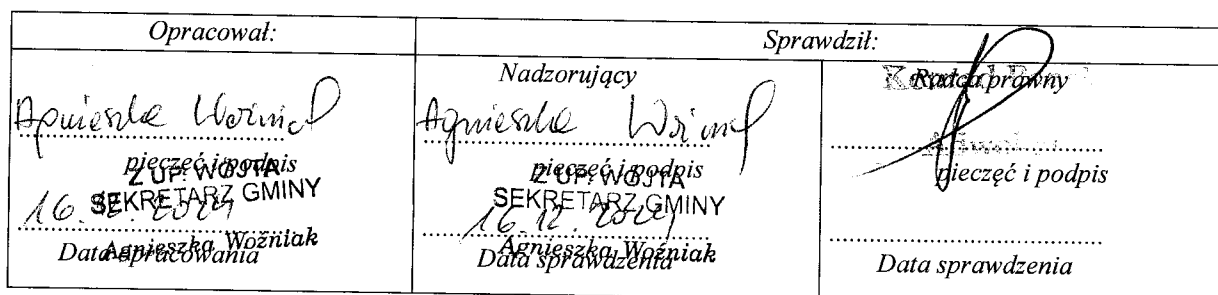 Opracował:
Sprawdził:
Agnieszka Woźniak
pieczęć i podpis
Z UP. WÓJTA
SEKRETARZ GMINY
16.12.2024
Agnieszka Woźniak
Data opracowania
Nadzorujący
Agnieszka Woźniak
pieczęć i podpis
Z UP. WÓJTA
SEKRETARZ GMINY
16.12.2024
Agnieszka Woźniak
Data sprawdzenia
Radca prawny
pieczęć i podpis
Data sprawdzenia